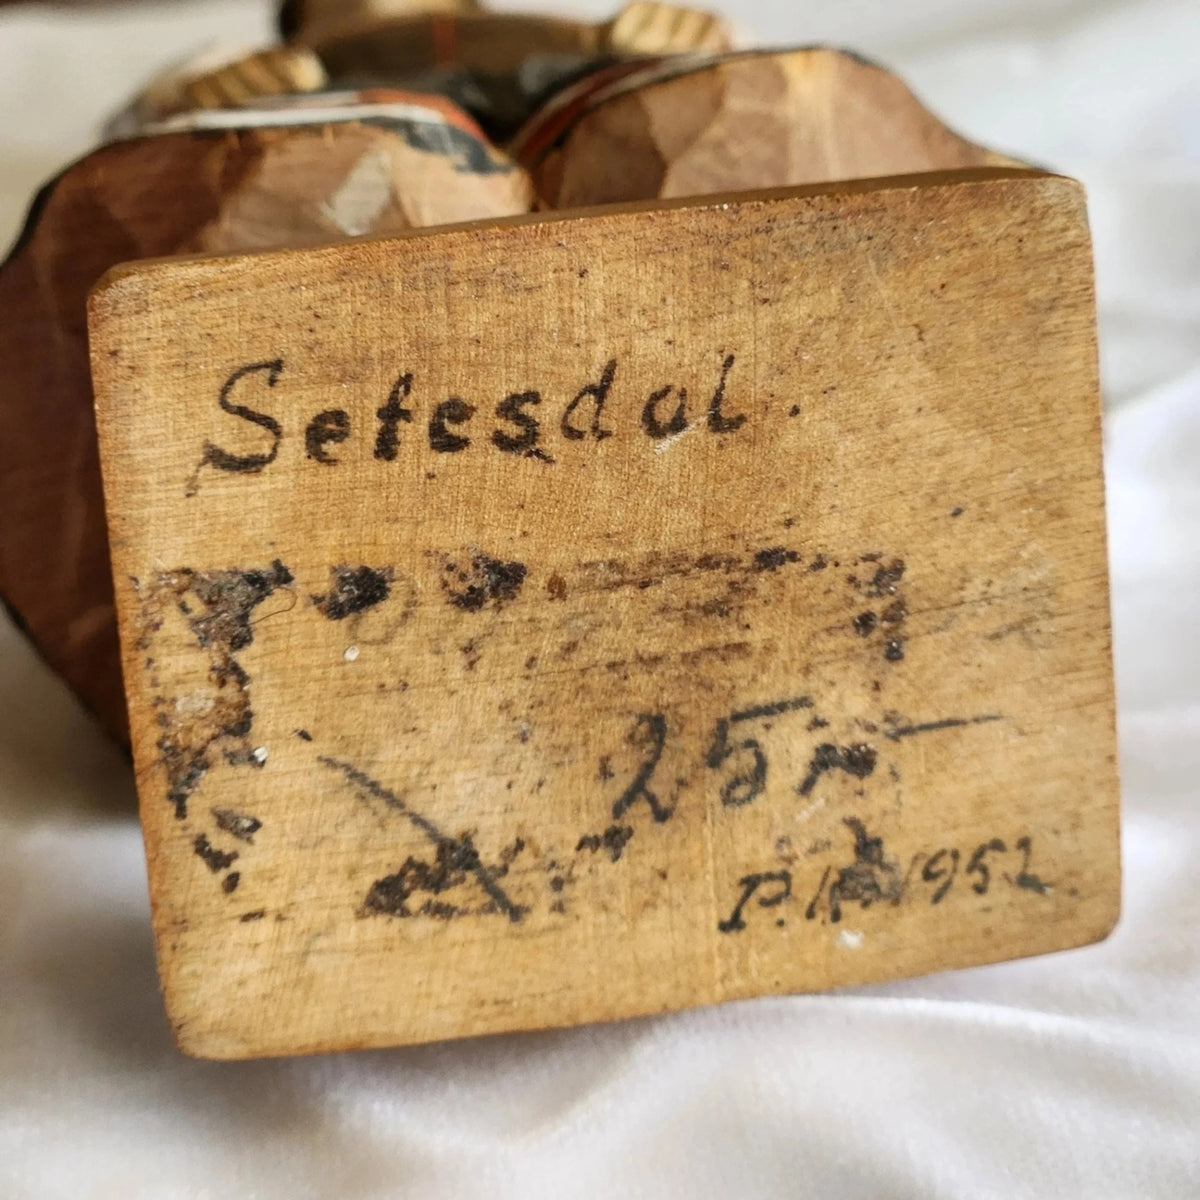 Setesdal.
25
P. 1952